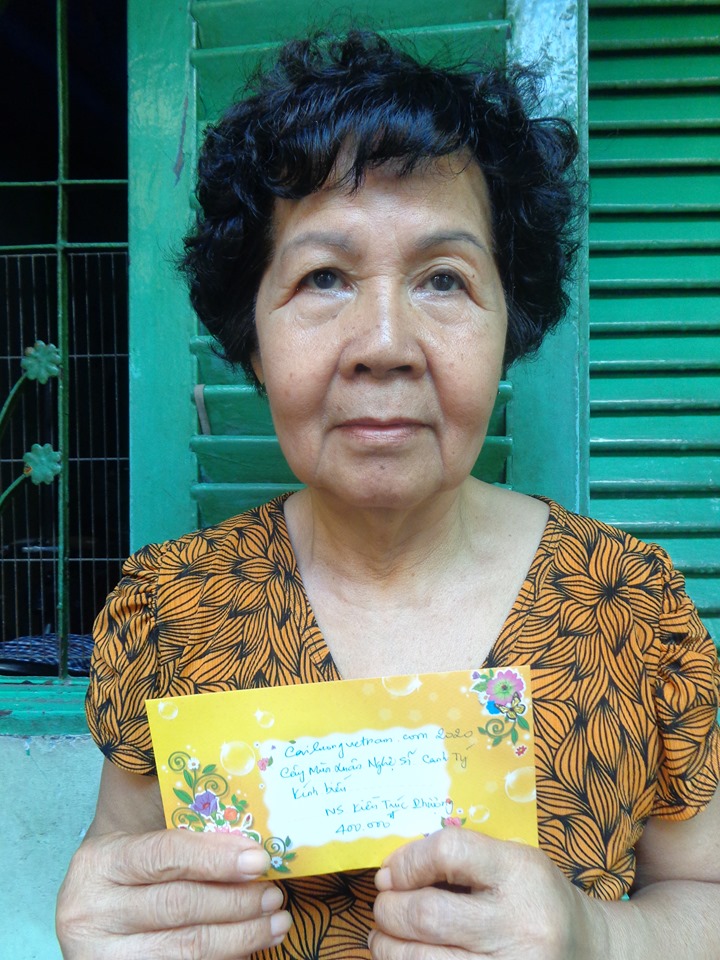 Cailuongvietnam com 2020
Cây Mùa Xuân Nghệ sĩ Canh Tý
Kính biếu
NS Kiều Trúc Phượng
400.000đ